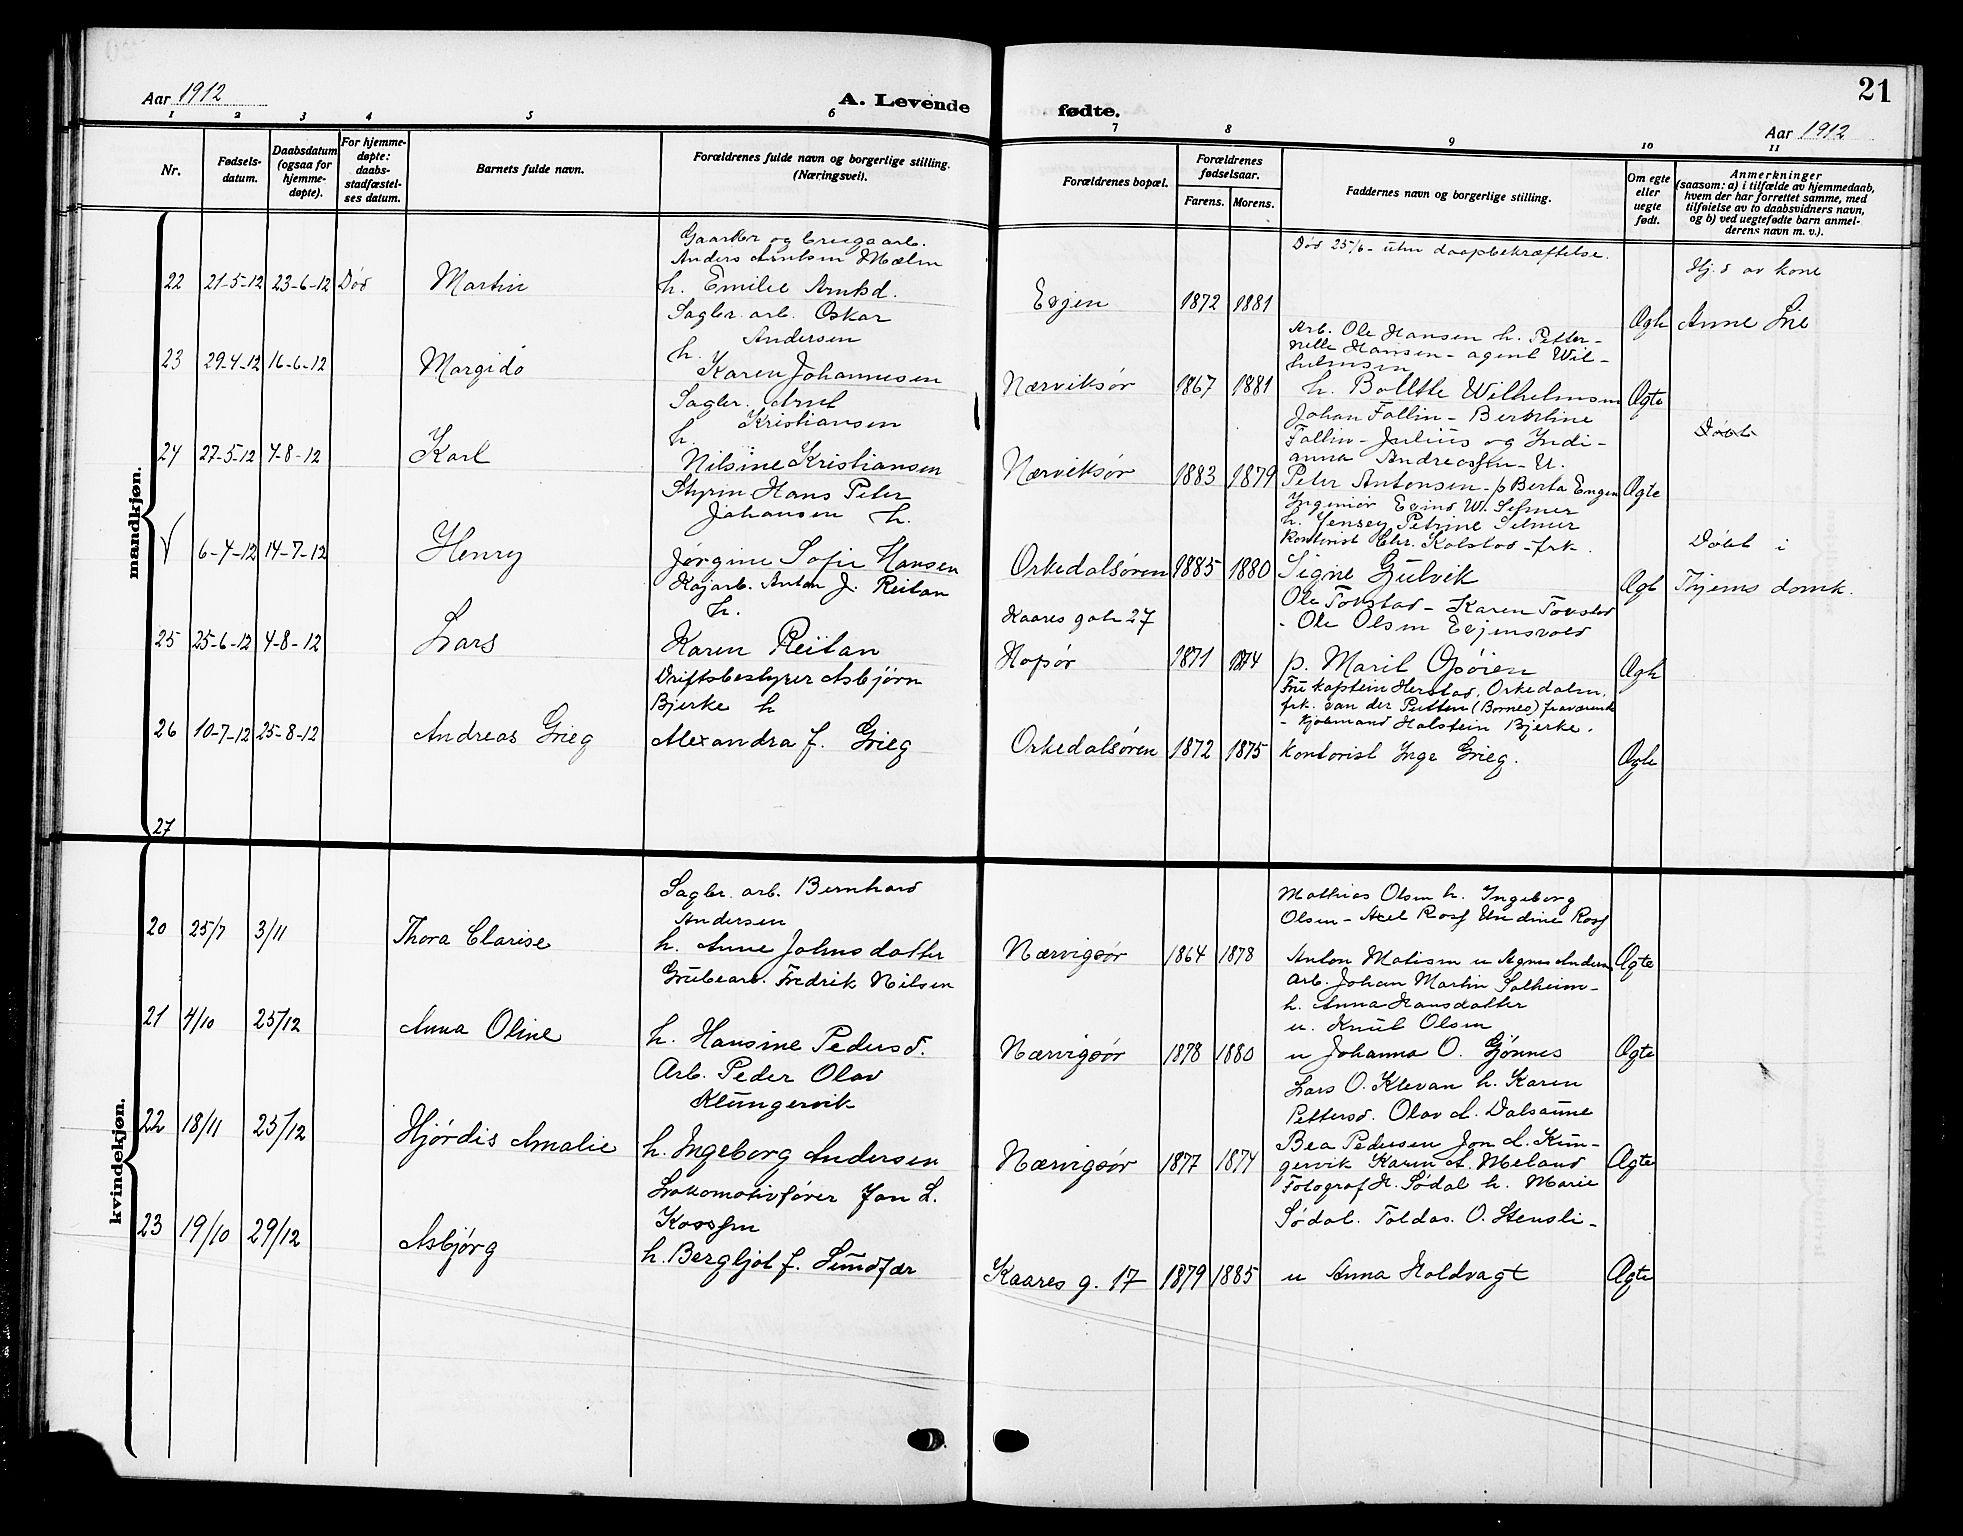 21
Aar 1912
A. Levende
fødte.
Aar 1912
1 2 3 4 5 6 7 8 9 10 11
Nr.
Fødsels-
datum.
Daabsdatum
(ogsaa for
hjemme-
døpte).
For hjemme-
døpte:
daabs-
stadfæstel-
ses datum.
Barnets fulde navn.
Forældrenes fulde navn og borgerlige stilling.
(Næringsvei).
Forældrenes bopæl.
Forældrenes
fødselsaar.
Farens. Morens.
Faddernes navn og borgerlige stilling.
Om egte
eller
uegte
født.
Anmerkninger
(saasom: a) i tilfælde av hjemmedaab,
hvem der har forrettet samme, med
tilføielse av to daabsvidners navn,
og b) ved uegtefødte barn anmel-
derens navn m. v.).
mandkjøn.
22 21-5-12 23-6-12 Død Martin
Anders Arntsen Mælen
h. Emilie Arntsd.
Evjen 1872 1881
Død 25/6 - uten daapbekræftelse.
Ægte
Hj. d av kone
Anne Lie
23 29-4-12 16-6-12 Margido
Sagbr. arb. Oskar
Andersen
h.
Karen Johannesen
Nærviksør 1867 1881
Arb. Ole Hansen h. Petter-
nelle Hansen - agent Wil-
helmsen
h. Bollette Wilhelmsen
Ægte
24 27-5-12 4-8-12 Karl
Sagbr. Arnt
Kristiansen
h.
Nilsine Kristiansen
Nærviksør 1883 1879
Johan Follin - Berntine
Follin - Julius og Indi-
anna Andreassen - U.
Peter Antonsen - p Berta Engen
Ægte
Døbt
6-4-12 14-7-12 Henry
Styrm Hans Peter
Johansen h.
Jørgine Sofie Hansen
Orkedalsøren 1885 1880
Ingeniør Eyind W. Selmer
h. Jensey Petrine Selmer
kontorist Chr. Kolstad - frk.
Signe Gulvik
Ægte
Døbt i
Thjems domk.
25 25-6-12 4-8-12 Lars
Kajarb. Anton J. Reitan
h.
Karen Reitan
Kaares gate 27
Hopør 1871 1874
Ole Tovstad - Karen Tovstad
- Ole Olsen Evjensvold
p. Marit Opøien
Ægte
26 10-7-12 25-8-12 Andreas Grieg
Driftsbestyrer Asbjørn
Bjerke h
Alexandra f. Grieg
Orkedalsøren 1872 1875
Fru kaptein Herstad, Orkedalen.
frk. van der Putten (Borneo) fraværende
- kjøbmand Halstein Bjerke.
Kontorist Inge Grieg.
Ægte
27
kvindekjøn.
20 25/7 3/11 Thora Clarise
Sagbr. arb. Bernhard
Andersen
h. Anne Johnsdatter
Nærvigsør 1864 1878
Mathias Olsen h. Ingeborg
Olsen - Axel Ross Undine Ross
Anton Matisen u Agnes Anders
Ægte
21 4/10 25/12 Anna Oline
Grubearb. Fredrik Nilsen
h. Hansine Pedersd.
Nærvigsør 1878 1880
Arb. Johan Martin Solheim -
h. Anna Hansdatter
u. Knut Olsen
u Johanna O. Gjønnes
Ægte
22 18/11 25/12 Hjørdis Amalie
Arb. Peder Olav
Klungervik
h. Ingeborg Andersen
Nærvigsør 1877 1874
Lars O. Klevan h. Karen
Pettersd. Olav A. Dalsaune
Bea Pedersen Jon A. Klun-
gervik Karen A. Meland
Ægte
23 19/10 29/12 Asbjørg
Lokomotivfører Jon L.
Kaassen
h. Bergljot f. Sundfær
Kaares g. 17 1879 1885
Fotograf H. Sødal h. Marie
Sødal. Toldas. O. Stensli -
u Anna Holdvagt
Ægte